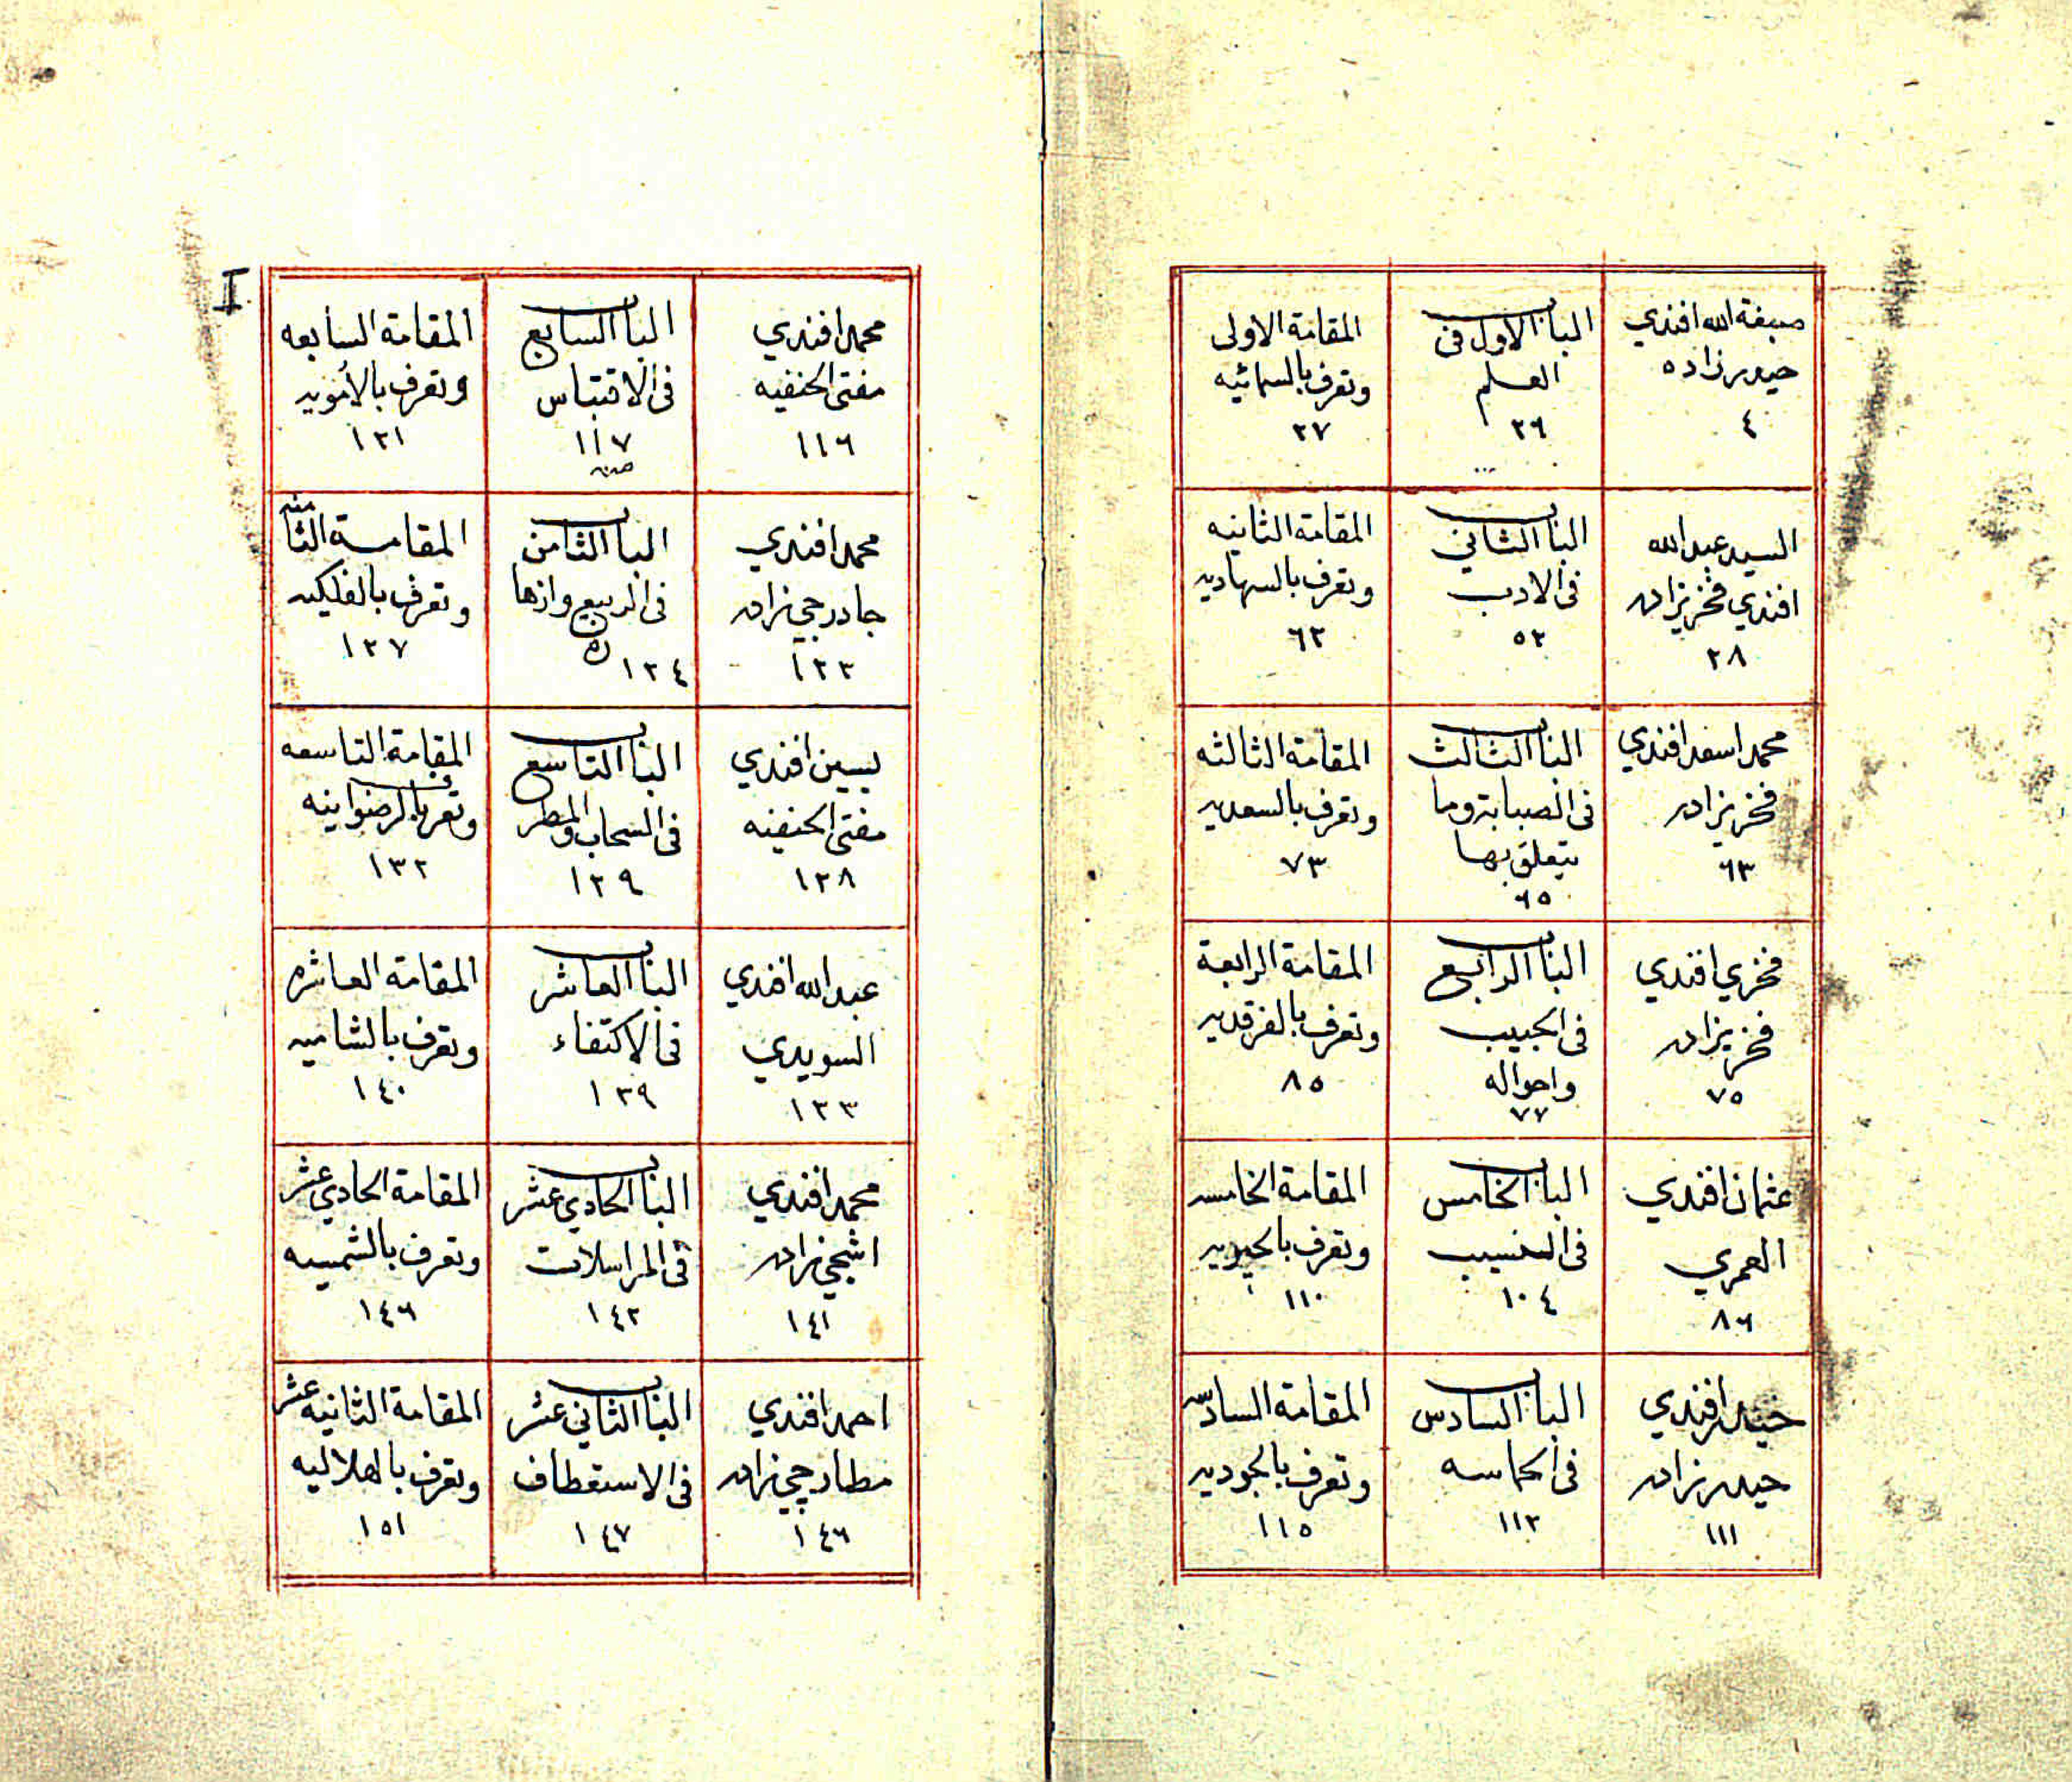 صبغة الله افندي
حيدر زاده
٤
الباب الاول فى
العلم
٢٦
المقامة الاولى
وتعرف بالسمائيه
٢٧
السيد عبد الله
افندي فخريزاده
٢٨
الباب الثاني
فى الادب
٥٢
المقامة الثانيه
وتعرف بالسهاديه
٦٢
محمد اسعد افندي
فخريزاده
٦٣
الباب الثالث
فى الصبابة وما
يتعلق بها
٦٥
المقامة الثالثه
وتعرف بالسعديه
٧٣
فخري افندي
فخريزاده
٧٥
الباب الرابع
فى الحبيب
واحواله
٧٧
المقامة الرابعة
وتعرف بالفرقديه
٨٥
عثمان افندي
العمري
٨٦
الباب الخامس
فى النسيب
١٠٤
المقامة الخامسه
وتعرف
١١٠
حيدر افندي
حيدر زاده
١١١
الباب السادس
فى الحماسه
١١٢
المقامة السادسه
وتعرف بالجوديه
١١٥
محمد افندي
مفتى الحنفيه
١١٦
الباب السابع
فى الاقتباس
١١٧
المقامة السابعه
وتعرف بالأمويه
١٢١
محمد افندي
جادرجي زاده
١٢٣
الباب الثامن
فى الربيع وازهاره
١٢٤
المقامة الثامنه
وتعرف بالفلكيه
١٢٧
يسين افندي
مفتى الحنفيه
١٢٨
الباب التاسع
فى السحاب والمطر
١٢٩
المقامة التاسعه
وتعرف بالرضوانيه
١٣٢
عبد الله افندي
السويدي
١٣٣
الباب العاشر
فى الاكتفاء
١٣٩
المقامة العاشره
وتعرف بالشاميه
١٤٠
محمد افندي
اشجي زاده
١٤١
الباب الحادي عشر
فى المراسلات
١٤٢
المقامة الحادي عشر
وتعرف بالشمسيه
١٤٦
احمد افندي
مطارجي زاده
١٤٦
الباب الثاني عشر
فى الاستعطاف
١٤٧
المقامة الثانيه عشر
وتعرف بالهلاليه
١٥١
I